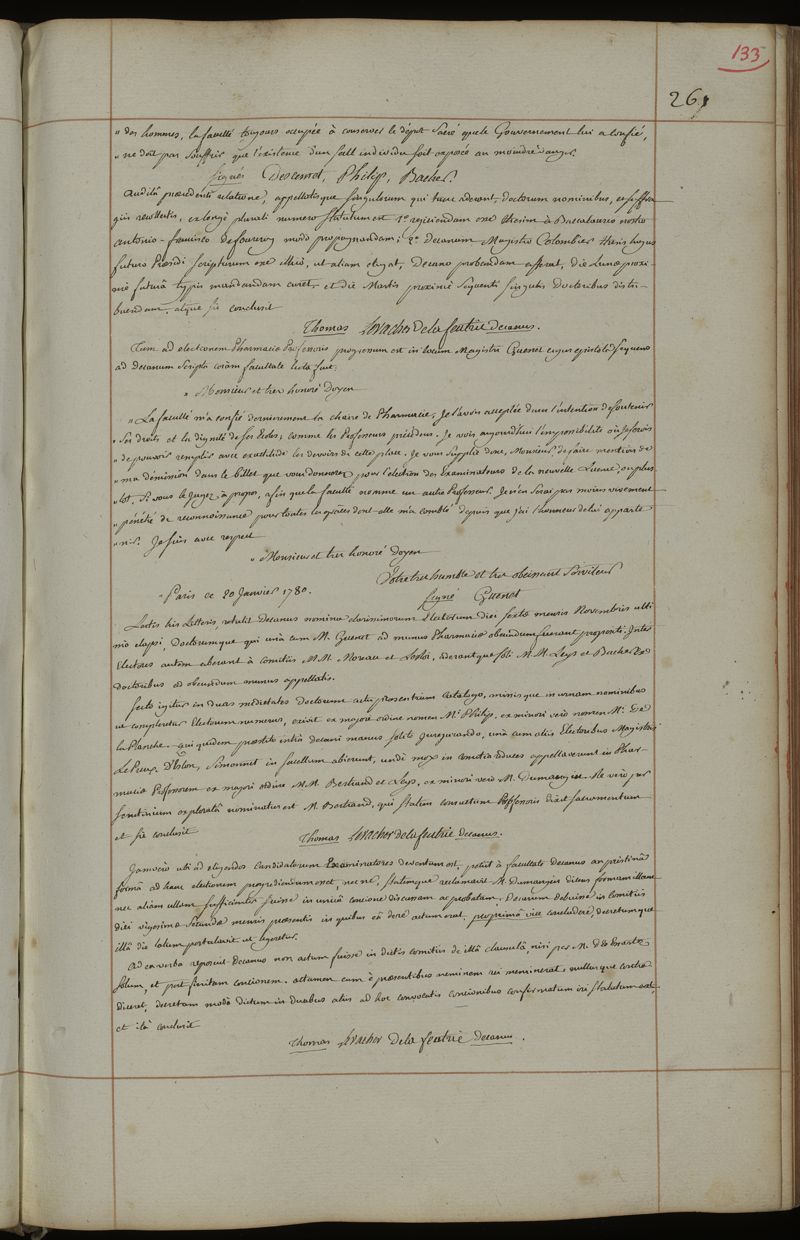 133
261
" des hommes, la faculté toujours occupée à conserver le dépôt sacré que le Gouvernement lui a confié,
" ne doit pas souffrir que l'existence d'un seul individu soit exposée au moindre danger.
signés Descemet, Philip, Bacher.
Auditâ praecedenti relatione, appellatisque singulorum qui tunc aderant, doctorum nominibus, et suffra-
giis recollectis, ex longè plurali numero statutum est 1º rejiciendam esse thesim à Baccalaureo nostro
antonio-francisco de fourcroy modo propugnandam; 2º Decanum Magistro Colombier thesis hujus
futuro Praesidi scripturum esse illicò, ut aliam eligat, Decano probandam afferat, die Lunae proxi-
mè futurâ typis mandandam curet, et die Martis proximè sequenti singulis doctoribus distri-
buendam, atque sic conclusit
Thomas Levacher de la feutrie decanus.
Tum ad electionem Pharmaciae Professoris progressum est in locum Magistri Guenet cujus epistola sequens
ad decanum scripta coràm facultate lecta fuit,
" Monsieur et tres honoré Doyen
" La faculté m'a confié dernierement la chaire de Pharmacie; Je l'avois acceptée dans l'intention de soutenir
" ses droits et la dignité de ses Ecoles, comme les Professeurs précédens. Je vois aujourdhui l'impossibilité où je serois
" de pouvoir remplir avec exactitude les devoirs de cette place. Je vous supplie donc, Monsieur, de faire mention de
" ma démission dans le billet que vous donnerez pour l'élection des Examinateurs de la nouvelle Licence, ou plus
" tôt, si vous le jugez à propos, afin que la faculté nomme un autre Professeur. Je n'en serai pas moins vivement
" pénétré de reconnoissance pour toutes les graces dont elle m'a comblé depuis que j'ai l'honneur de lui apparte-
" nir. Je suis avec respect
" Monsieur et tres honoré Doyen
Votre tres humble et tres obeissant serviteur
" Paris ce 20 Janvier 1780. signé Guenet
Lectis his Litteris, retulit Decanus nomina clarissimorum Electorum diei sextae mensis Novembris ulti-
mò elapsi, Doctorumque qui unà cum M. Guenet ad munus Pharmaciae obeundum fuerant propositi. Inter
Electores autem aberant à comitiis M M. Moreau et , aderantque soli M. M. Leys et Bacher ex
doctoribus ad obeundum munus appellatis.
Secto igitur in duas medietates Doctorum actu praesentium catalogo, missisque in urnam nominibus
ut compleretur Electorum numerus, exivit ex majore ordine nomen Mi. Philip, ex minori verò nomen Mi. De
la Planche. qui quidem praestito intrà decani manus solito jurejurando, unà cum aliis Electoribus Magistris
Le Preux, Simonnet in sacellum abierunt, undè mox in comitia reduces appellaverunt in Phar-
maciae Professorem ex majori ordine M. M. Bertrand et Leys, ex minori verò M. Dumangin. Re verò per
scrutinium exploratâ nominatus est M. Bertrand, qui statim consuetum Professoris dixit sacramentum
et sic conclusit
Thomas Levacher de la feutrie decanus.
Jamverò ubi ad eligendos candidatorum Examinatores descensum est, petiit à facultate Decanus an pristinâ
formâ ad hanc electionem progrediendum esset, nec ne, statimque reclamavit M. Dumangin dicens formam illam
nec aliam ullam sufficienter fuisse in unicâ concione discussam ac probatam. Decanum debuisse in comitiis
diei vigesimae secundae mensis praesentis in quibus eâ de re actum erat, pro primâ vice concludere, decretumque
illâ die latum postulavit ut legeretur.
Ad ea verba reposuit Decanus non actum fuisse in dictis comitiis de illâ clausulâ, nisi per M.
solum, et post finitam concionem. attamen cum è praesentibus neminem rei meminerat nullusque contra-
diceret, decretum modò dictum in duabus aliis ad hoc convocatis concionibus confirmatum iri statutum est,
et ità conclusit
Thomas Levacher de la feutrie decanus.